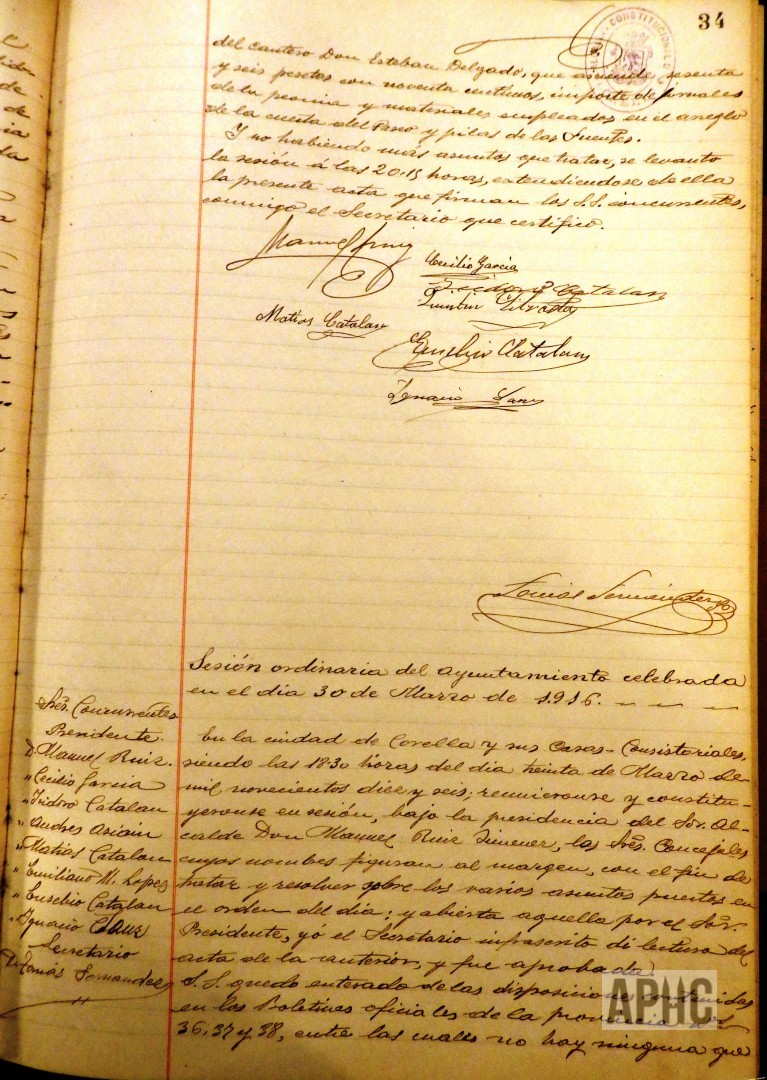 34
del cantero Don Esteban Delgado, que asciende sesenta
y seis pesetas con noventa centimos, importe de jornales
de la peonia y materiales empleados en el arreglo
de la cuesta del Paseo y pilas de las Fuentes.
Y no habiendo más asuntos que tratar, se levanto
la sesión á las 20.15 horas, extendiendose de ella
la presente acta que firman los S.S. concurrentes,
conmigo el Secretario que certifico.
Manuel Ruiz
Cecilio Garcia
Isidoro Catalan
Matias Catalan
Eusebio Catalan
Ignacio
Tomás Fernandez
Sesión ordinaria del ayuntamiento celebrada
en el dia 30 de Marzo de 1.916.
Sres. Concurrentes
Presidente.
D. Manuel Ruiz.
" Cecilio Garcia
" Isidro Catalan
" Andres
" Matias Catalan
" Emiliano M. Lopez
" Eusebio Catalan
" Ignacio
Secretario
D. Tomás Fernandez
En la ciudad de Corella y sus Casas-Consistoriales,
siendo las 18'30 horas del dia treinta de Marzo de
mil novecientos diez y seis; reunieronse y constitu-
yeronse en sesión, bajo la presidencia del Sor. Al-
calde Don Manuel Ruiz Jimenez, los Sres. Concejales
cuyos nombres figuran al margen, con el fin de
tratar y resolver sobre los varios asuntos puestos en
el orden del dia; y abierta aquella por el Sor.
Presidente, yó el Secretario infrascrito di lectura del
acta de la anterior, y fue aprobada.
S.S. quedo enterado de las disposiciones contenidas
en los Boletines oficiales de la provincia nos
36, 37 y 38, entre las cuales no hay ninguna que
APHC